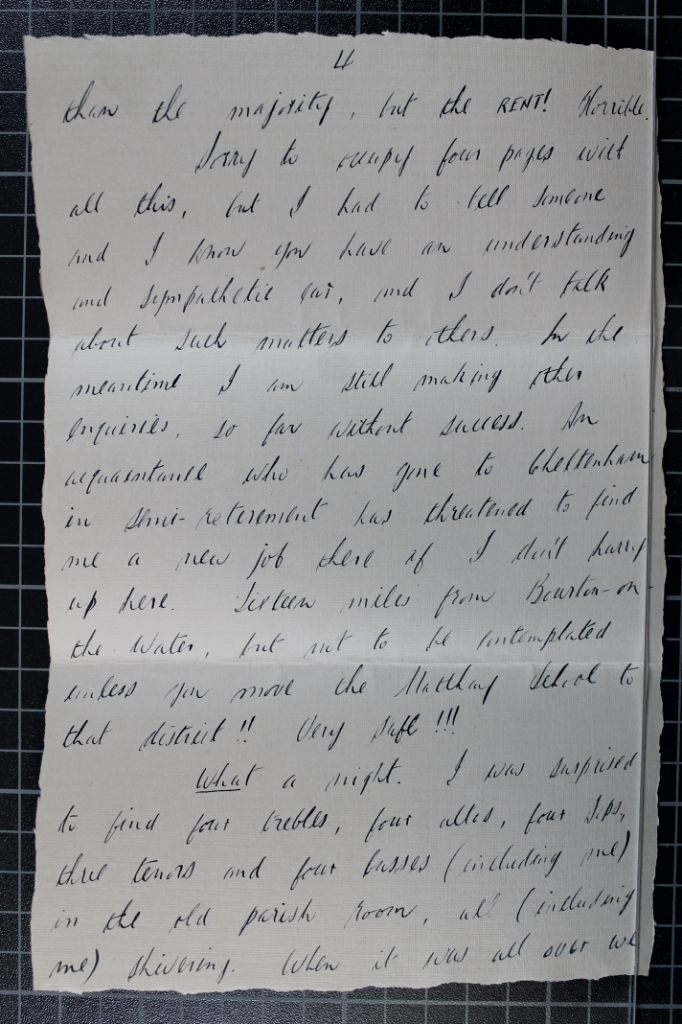 4
than the majority, but the RENT! Horrible.
Sorry to occupy four pages with
all this, but I had to tell someone
and I know you have an understanding
and sympathetic ear, and I don't talk
about such matters to others. In the
meantime I am still making other
enquiries, so far without success. An
acquaintance who has gone to Cheltenham
in semi-retirement has threatened to find
me a new job there if I don't hurry
up here. Sixteen miles from Bourton-on-
the-Water, but not to be contemplated
unless you move the Matthay School to
that district!! Very safe!!!
What a night. I was surprised
to find four trebles, four altos, four
three tenors and four basses (including me)
in the old parish room, all (including
me) shivering. When it was all over we